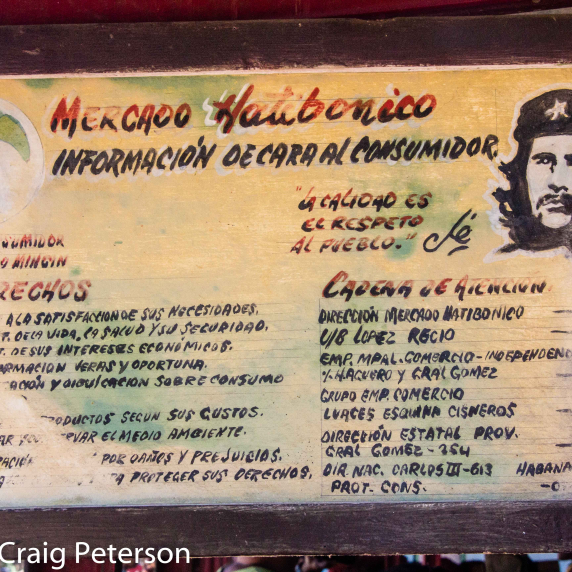 MERCADO Hatibonico
INFORMACIÓN DE CARA AL CONSUMIDOR
"LA CALIDAD ES
EL RESPETO
AL PUEBLO." Che
SUMIDOR
MINCIN
RECHOS
A LA SATISFACCION DE SUS NECESIDADES.
T. DE LA VIDA, LA SALUD Y SU SEGURIDAD.
T. DE SUS INTERESES ECONÓMICOS.
FORMACION VERAS Y OPORTUNA.
CACIÓN Y DIVULGACION SOBRE CONSUMO
PRODUCTOS SEGUN SUS GUSTOS.
AR EL MEDIO AMBIENTE.
POR DAÑOS Y PREJUICIOS.
A PROTEGER SUS DERECHOS.
CADENA DE ATENCIÓN.
DIRECCIÓN MERCADO HATIBONICO
U/B LOPEZ RECIO
EMP. MPAL. COMERCIO-INDEPENDENC
%HAGUERO Y GRAL GOMEZ
GRUPO EMP. COMERCIO
LUACES ESQUINA CISNEROS
DIRECCIÓN ESTATAL PROV.
GRAL GOMEZ-354
DIR. NAC. CARLOS III-613 HABANA
PROT. CONS.
Craig Peterson